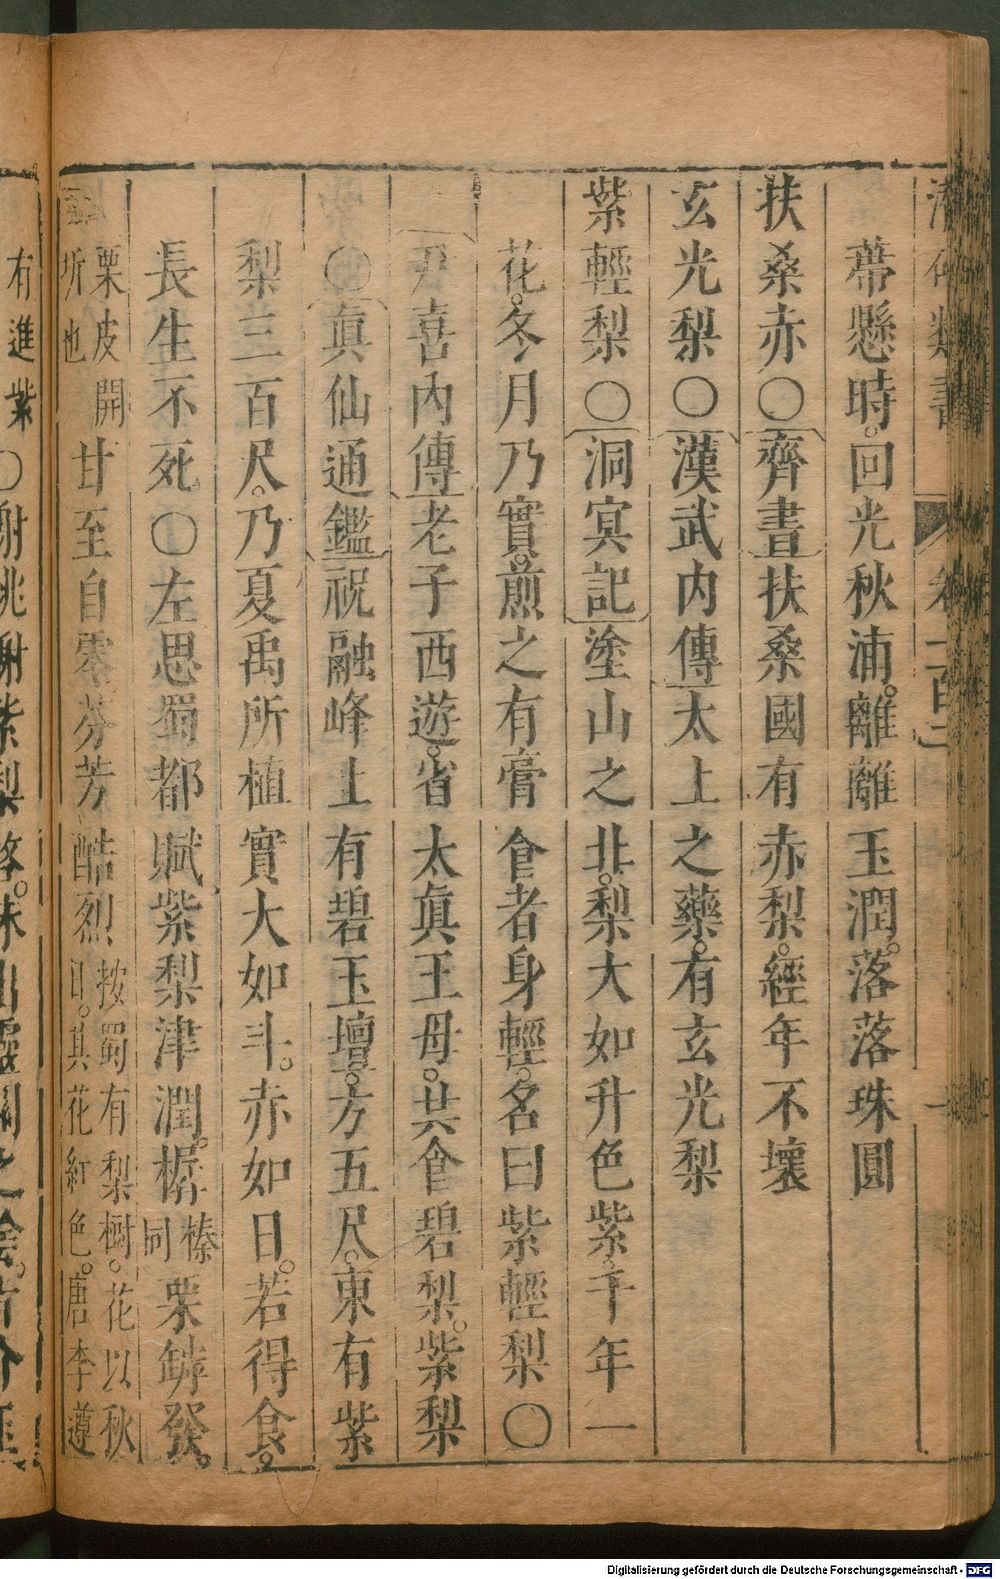 蔕懸時。回光秋浦。離離玉潤。落落珠圓
扶桑赤〇齊書扶桑國有赤梨。經年不壞
玄光梨〇漢武內傳太上之藥。有玄光梨
紫輕梨〇洞冥記塗山之北。梨大如升色紫。千年一
花。冬月乃實。煎之有膏食者身輕。名曰紫輕梨〇
尹喜內傳老子西遊。省太眞王母。共食碧梨。紫梨
〇眞仙通鑑祝融峰上有碧玉壇。方五尺。東有紫
梨三百尺。乃夏禹所植實大如斗。赤如日。若得食。
長生不死。〇左思蜀都賦紫梨津潤。樼榛同栗罅發。
栗皮開
坼也甘至自零。芬芳酷烈按蜀有梨樹。花以秋
日。其花紅色。唐李遵
有進紫〇謝
Digitalisierung gefördert durch die Deutsche Forschungsgemeinschaft - DFG